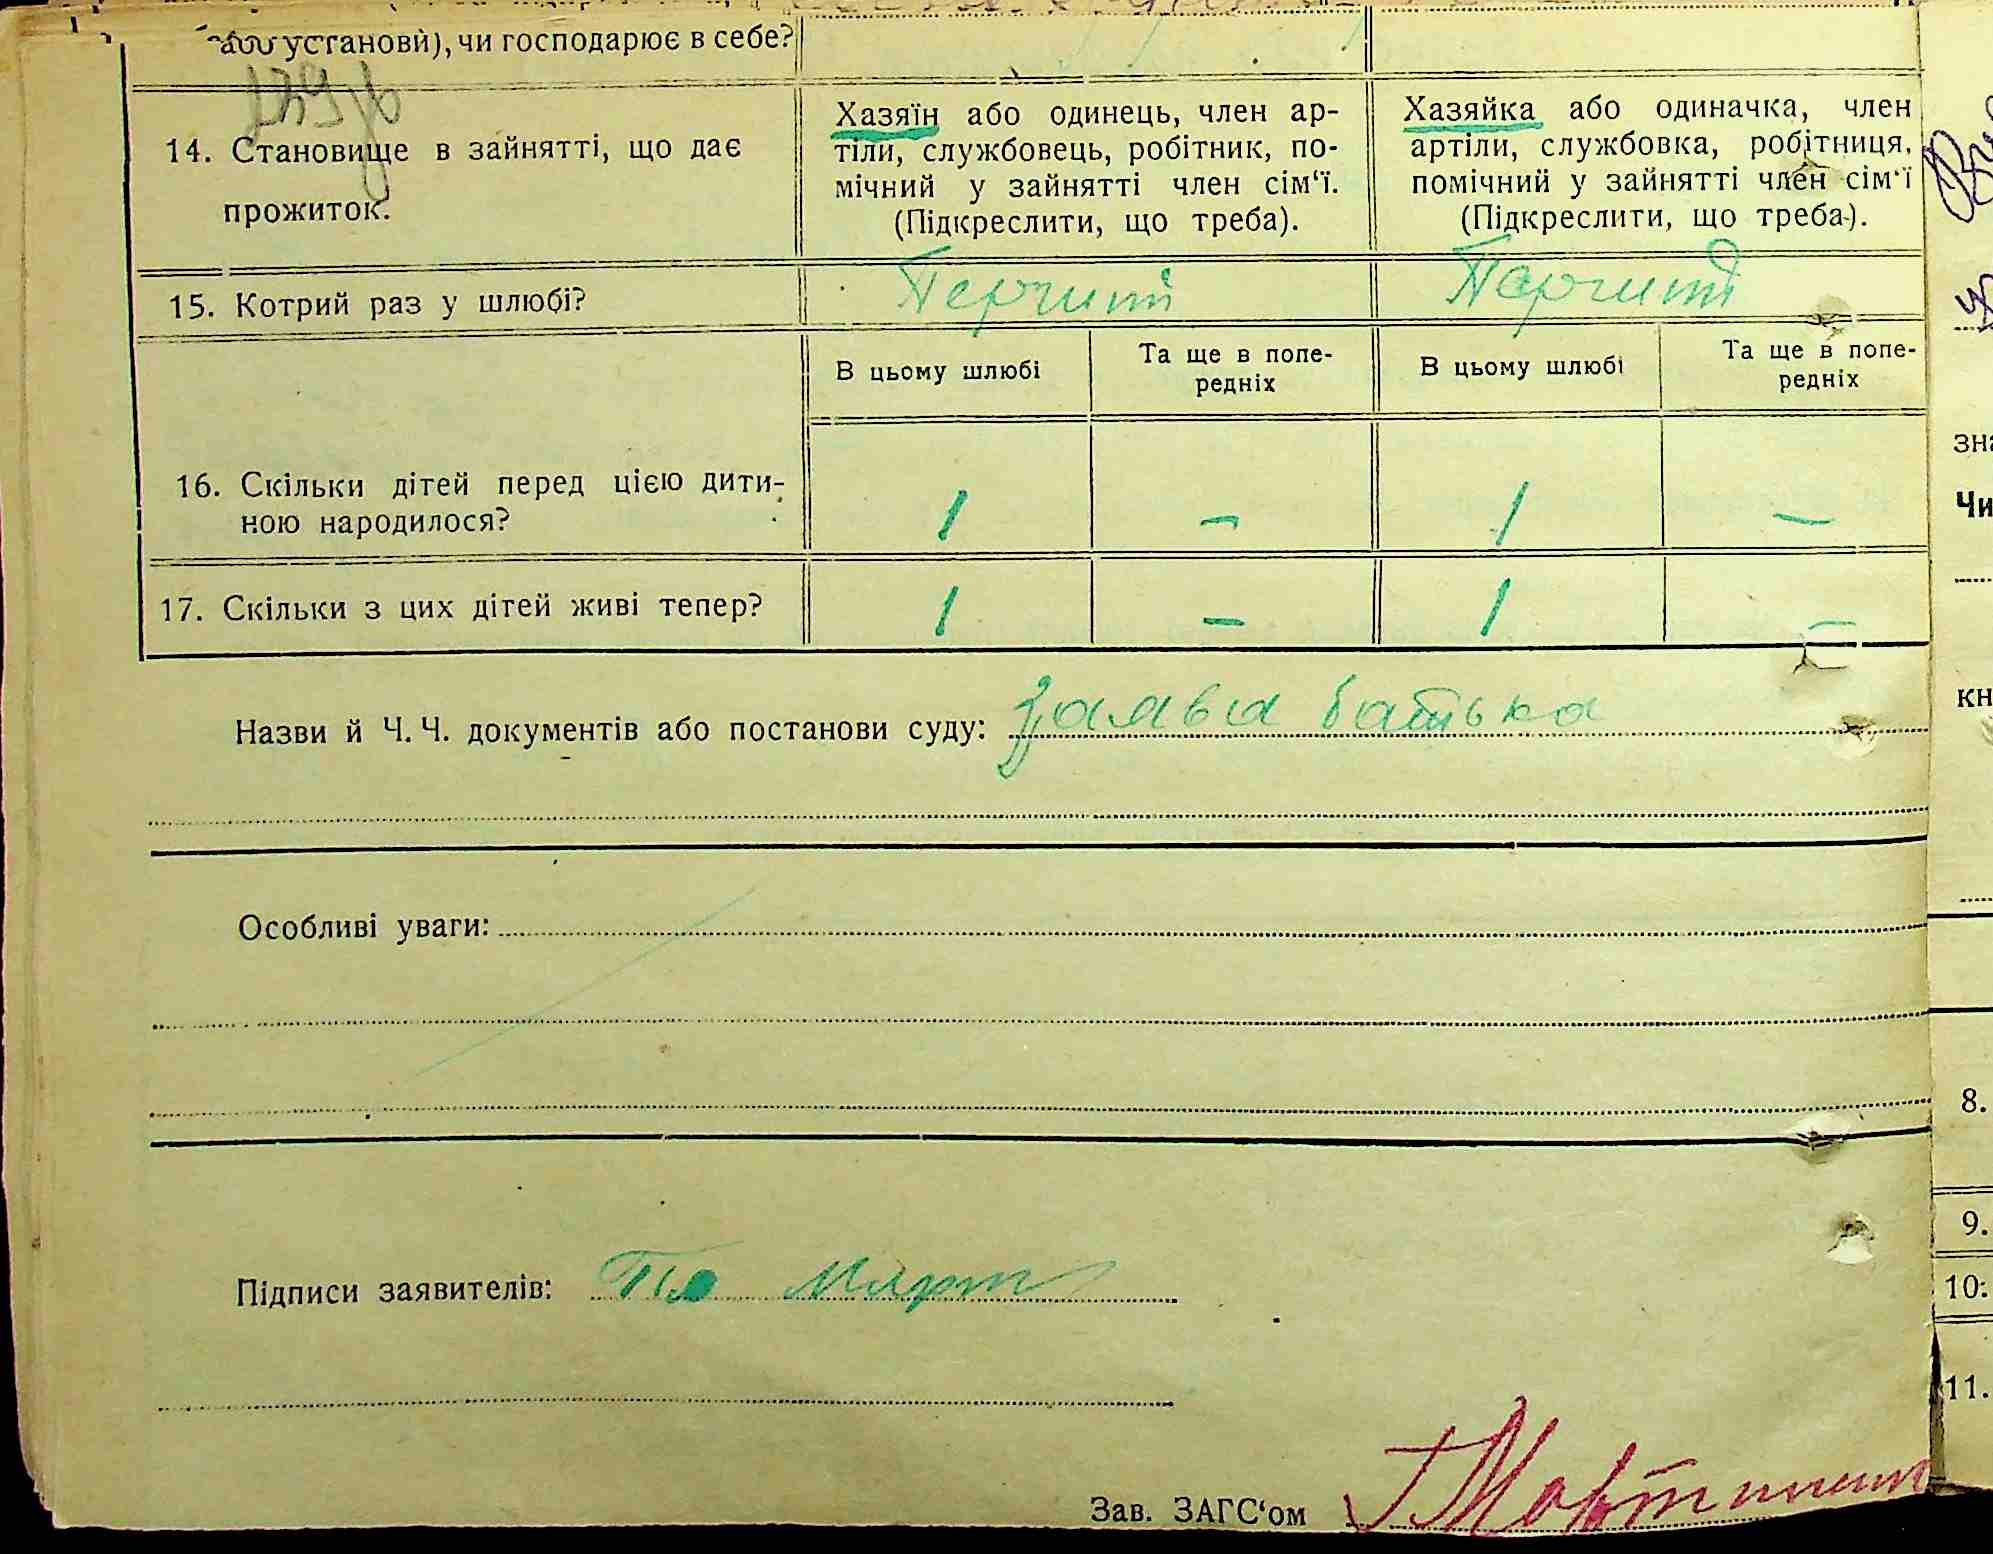 або установи), чи господарює в себе?
14. Становище в зайнятті, що дає прожиток.
Хазяїн або одинець, член ар-
тіли, службовець, робітник, по-
мічний у зайнятті член сім‘ї.
(Підкреслити, що треба).
Хазяйка або одиначка, член
артіли, службовка, робітниця,
помічний у зайнятті член сім‘ї
(Підкреслити, що треба).
15. Котрий раз у шлюбі?
В цьому шлюбі
Та ще в попе-
редніх
В цьому шлюбі
Та ще в попе-
редніх
16. Скільки дітей перед цією дити-
ною народилося?
1 – 1 –
17. Скільки з цих дітей живі тепер?
1 – 1 –
Назви й Ч. Ч. документів або постанови суду: заява батька
Особливі уваги:
Підписи заявителів:
Зав. ЗАГС‘ом
8.
9.
10.
11.